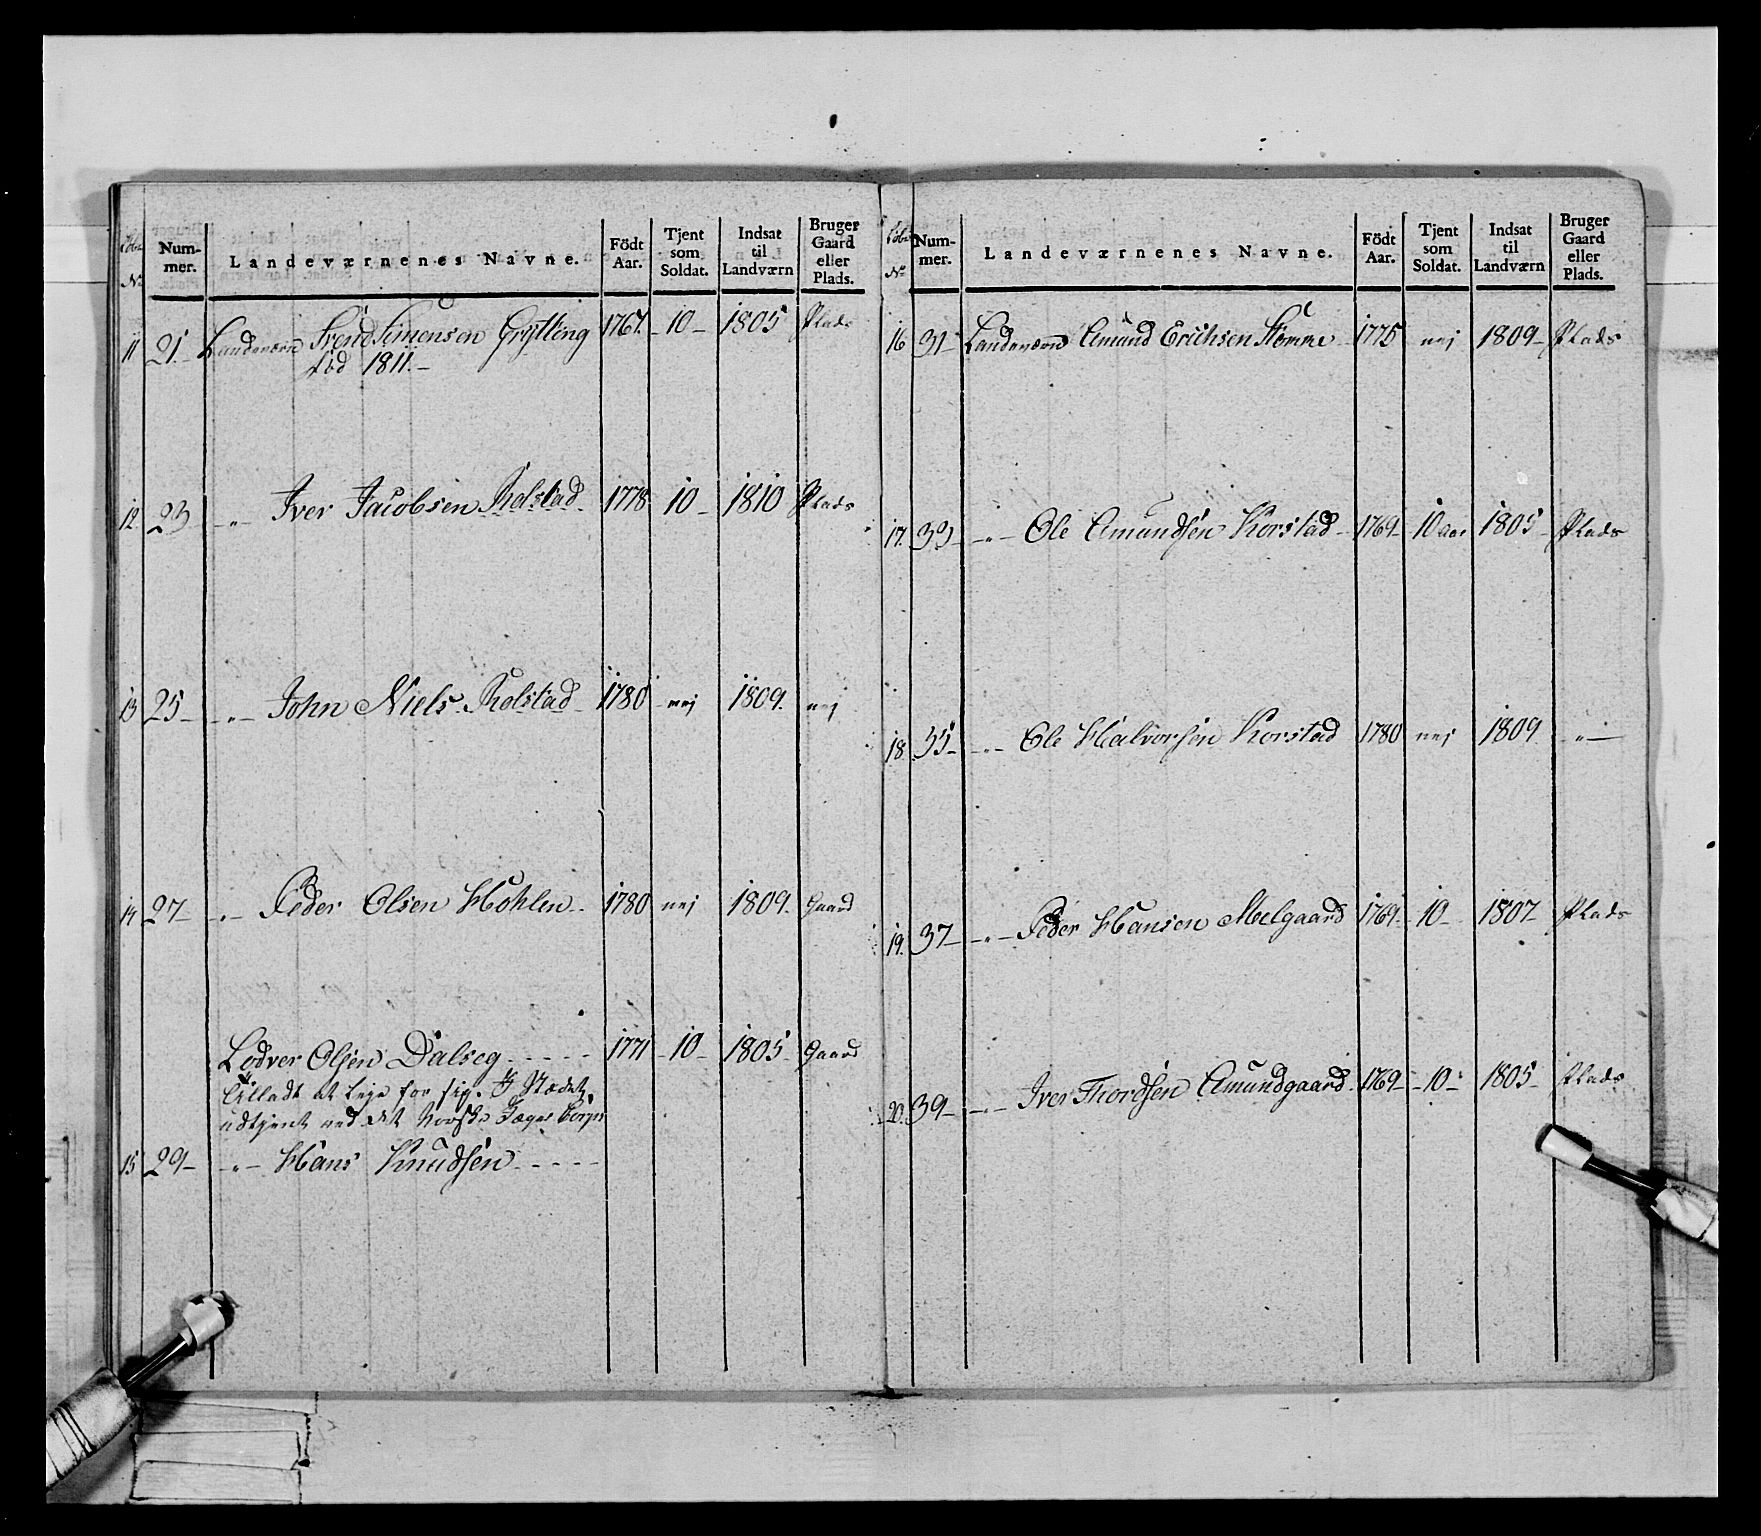 Løbe No
Num-
mer.
Landeværnenes Navne.
Födt
Aar.
Tjent
som
Soldat.
Indsat
til
Landværn
Bruger
Gaard
eller
Plads.
11 21. Landeværn Svend Simensen Grytting 1767. 10 1805 Plads
död 1811.
12 23 „ Iver Jacobsen Kolstad 1778 10 1810 Plads
13 25 „ John Niels. Kolstad 1780 nej 1809. nej
14 27 „ Peder Olsen Hohlen 1780 nej 1809. Gaard
Lodver Olsen Dalseg 1771 10 1805 Gaard
tilladt at leje for sig. I Stædet
udtjent ved det Norske Jæger Corps
15 29 „ Hans Knudsen
Løbe No
Num-
mer.
Landeværnenes Navne.
Födt
Aar.
Tjent
som
Soldat.
Indsat
til
Landværn
Bruger
Gaard
eller
Plads.
16 31 Landeværn Amund Erichsen 1775 nej 1809 Plads
17. 33 „ Ole Amundsen Korstad 1769 10 aar 1805 Plads
18 35 „ Ole Halvorsen Korstad 1780 nej 1809 „
19. 37 „ Peder Hansen Melgaard 1769 10 1807 Plads
20. 39 „ Iver Thordsen Amundgaard 1769 10 1805 Plads